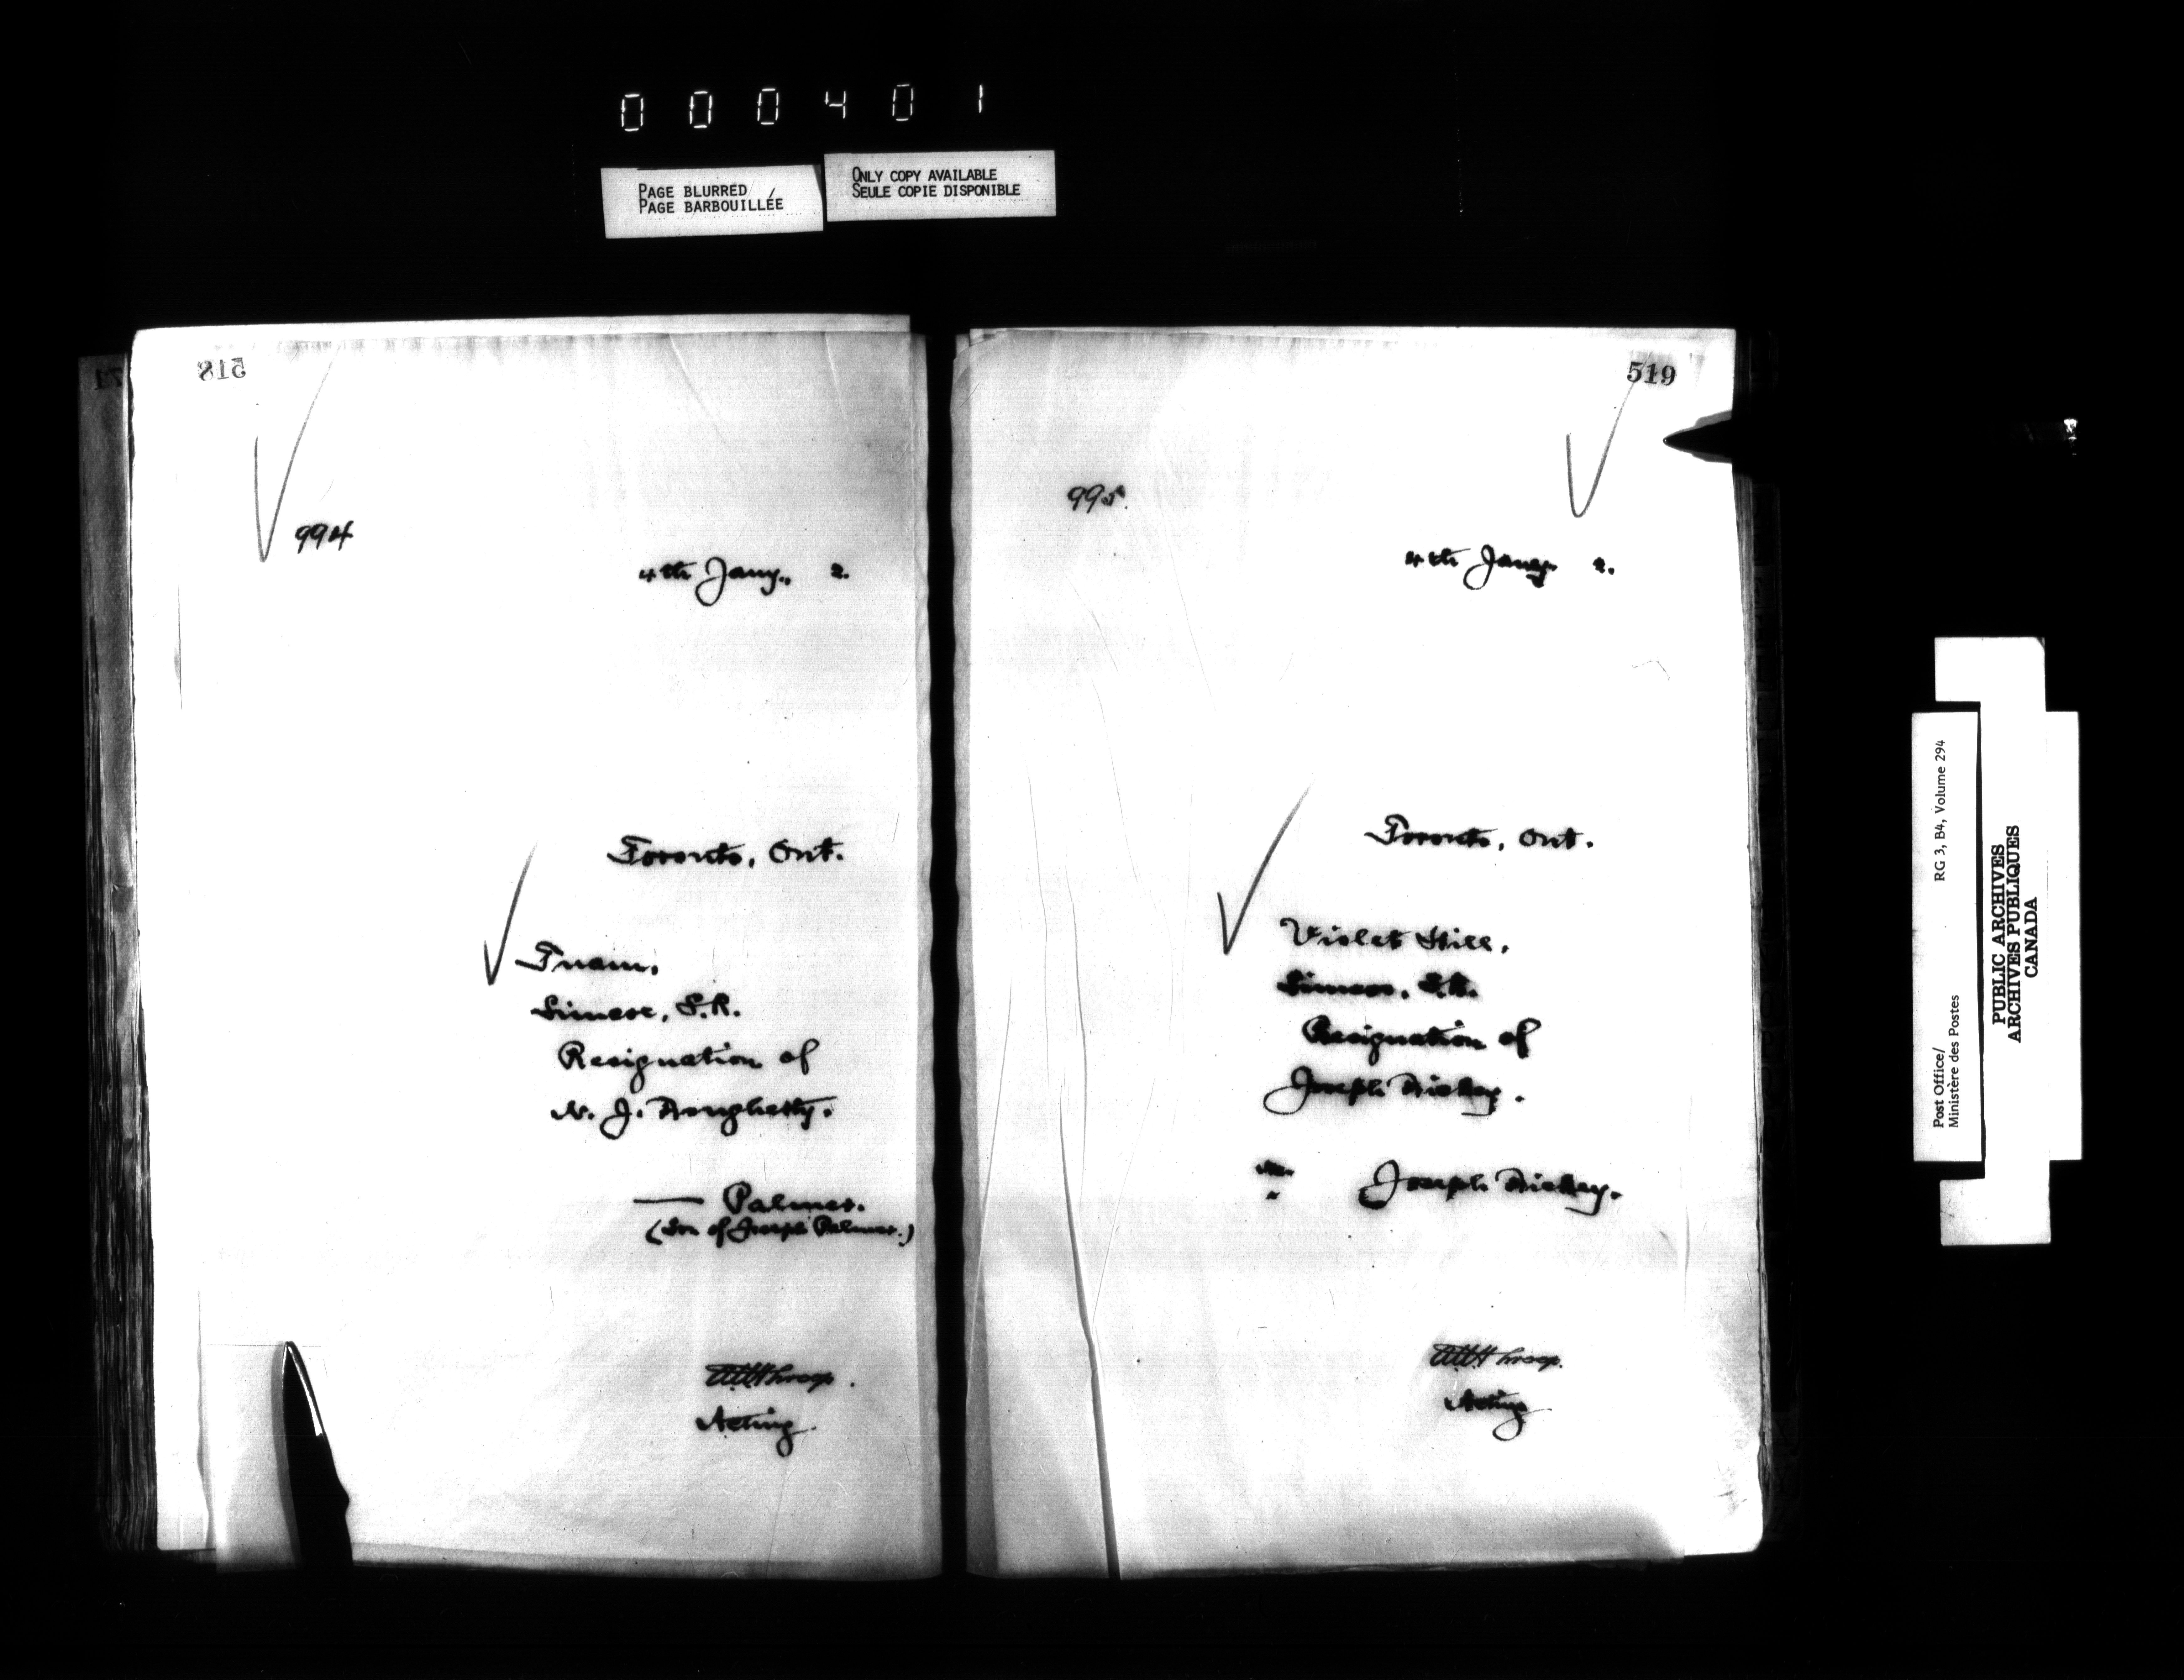 000401
PAGE BLURRED
PAGE BARBOUILLÉE
ONLY COPY AVAILABLE
SEULE COPIE DISPONIBLE
518
994
4th Jany., 2.
Toronto, Ont.
Tuam,
Simcoe, S.R.
Resignation of
J. Dougherty.
— Palmer.
(Son of Joseph Palmer.)
Throop.
Acting
519
995.
4th Jany. 2.
Toronto, Ont.
Violet Hill,
Simcoe, S.R.
Resignation of
Joseph Dickey.
Joseph Dickey.
Throop.
Acting
Post Office/
Ministère des Postes
RG 3, B4, Volume 294
PUBLIC ARCHIVES
ARCHIVES PUBLIQUES
CANADA